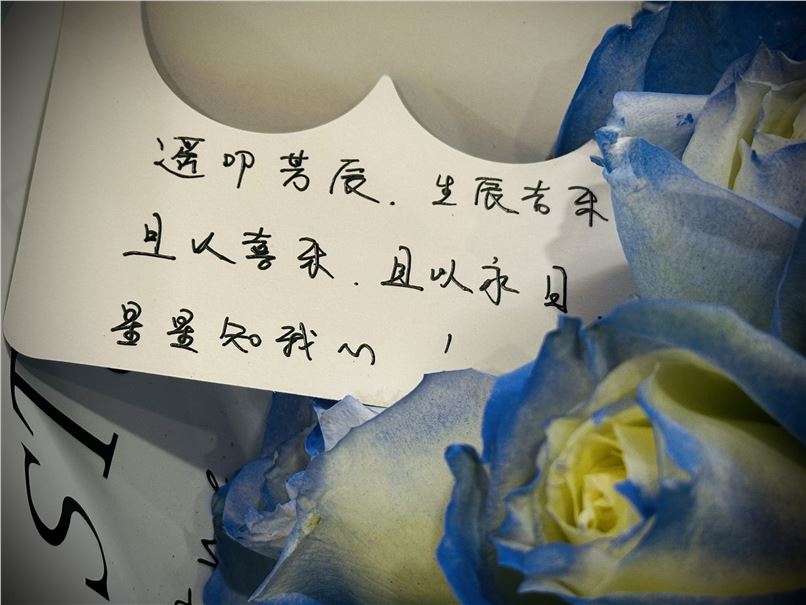 遥叩芳辰.生辰吉乐
且以喜乐.且以永日.
星星知我心!